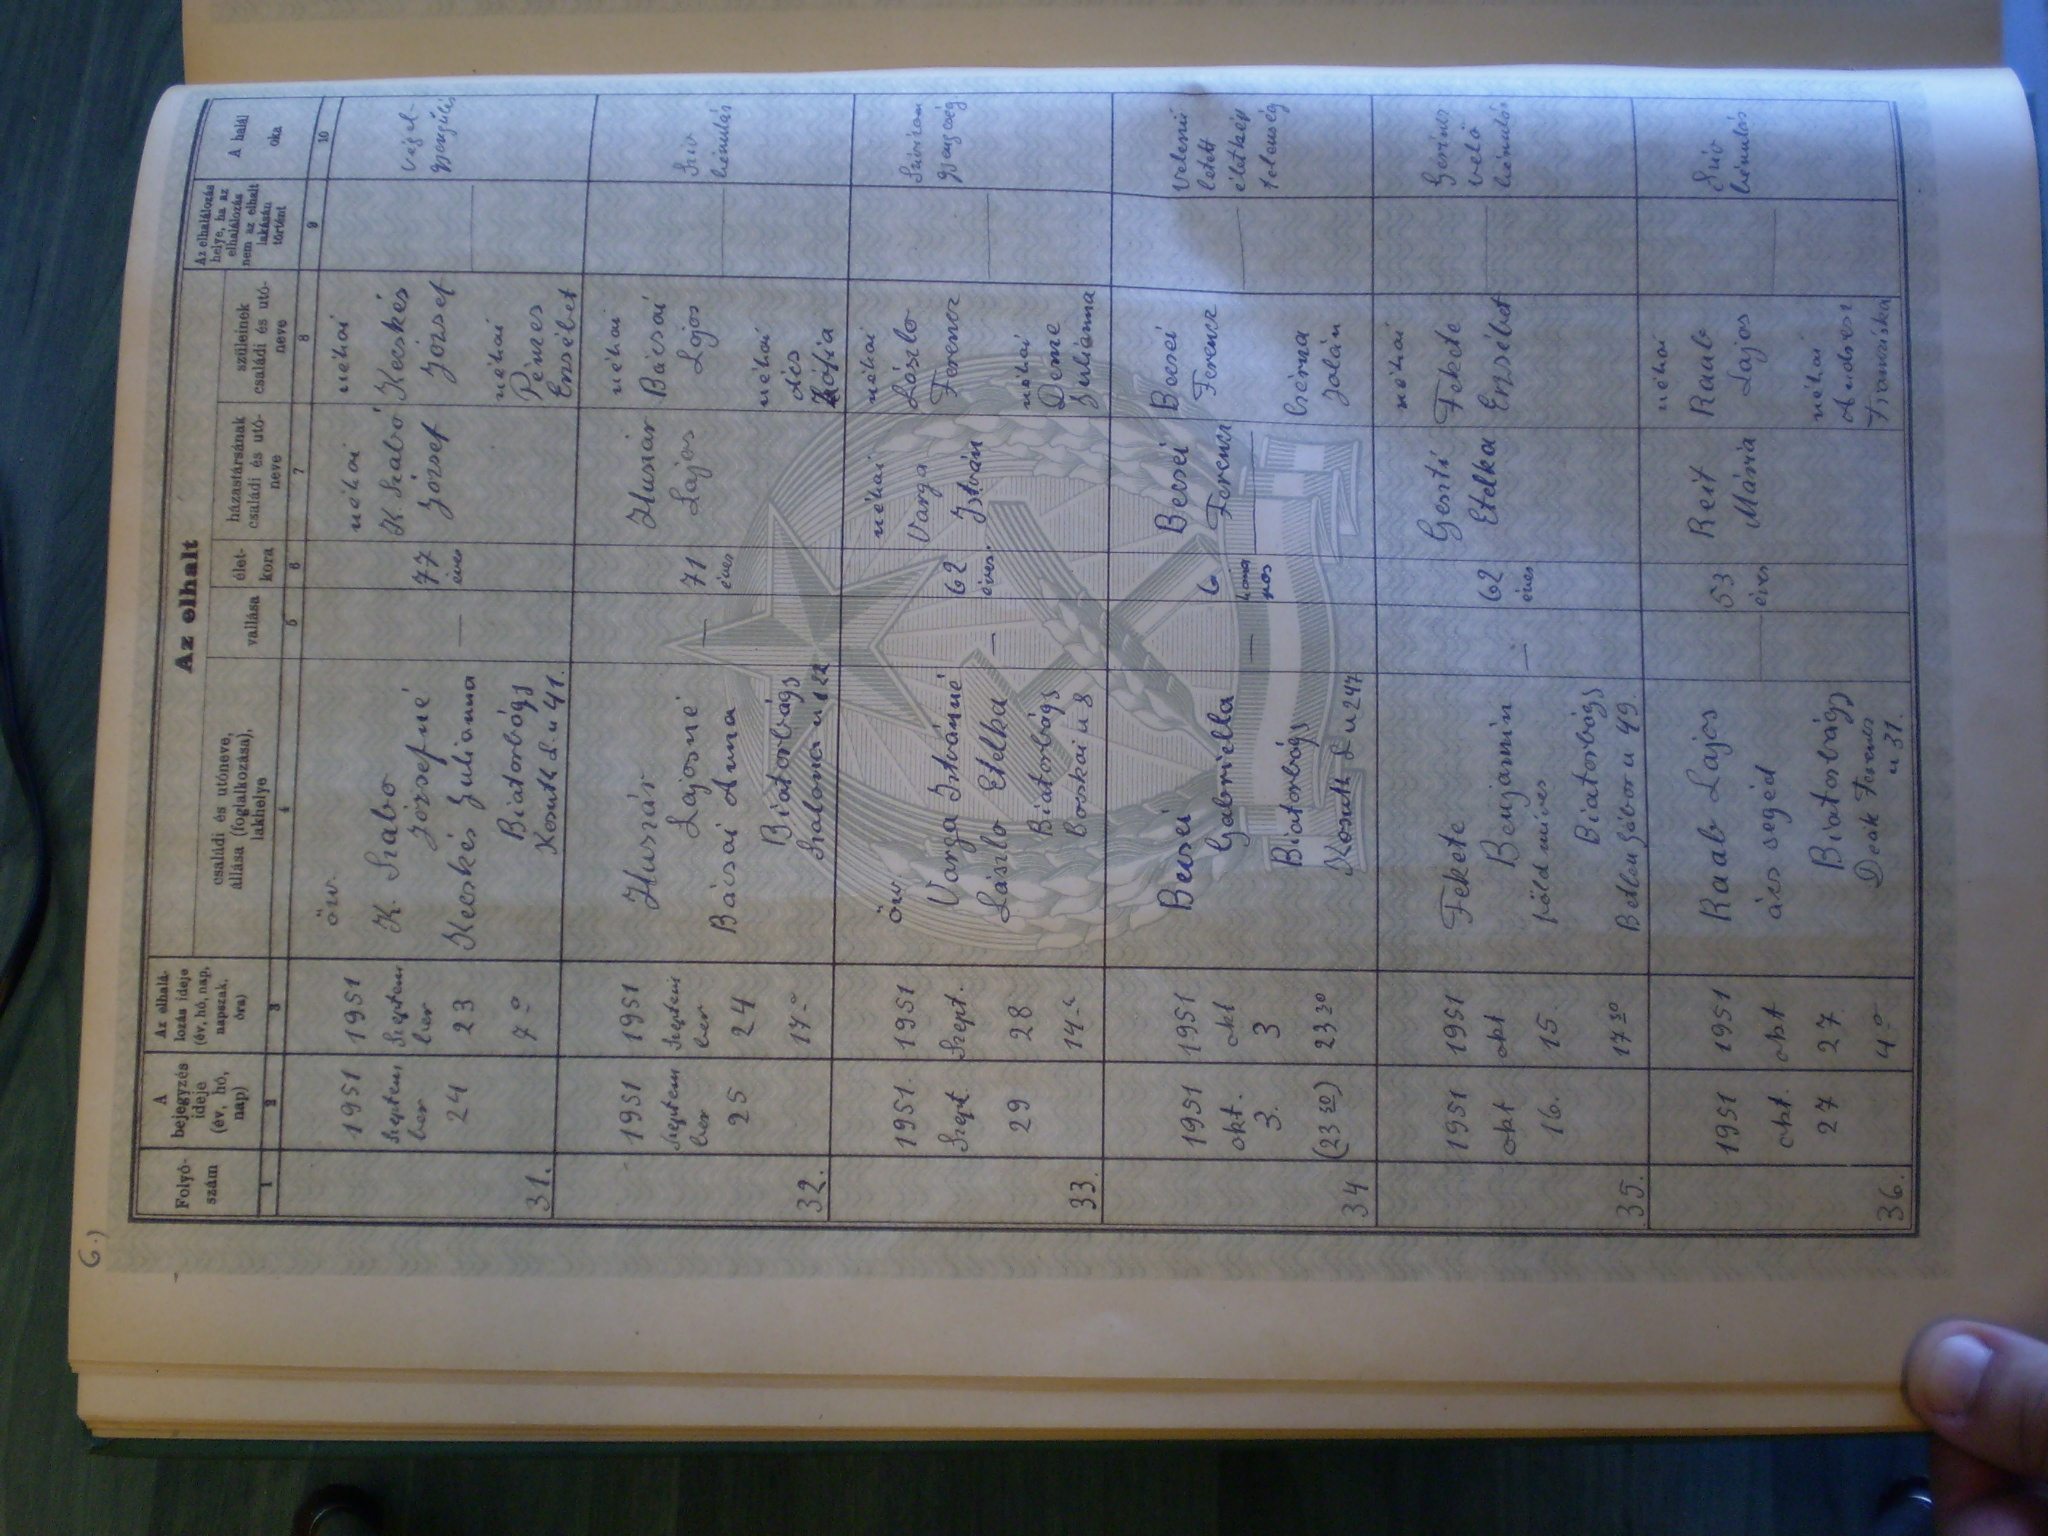 6.)
Az elhalt
Folyó-
szám
A
bejegyzés
ideje
(év, hó,
nap)
Az elhalá-
lozás ideje
(év, hó, nap,
napszak,
óra)
családi és utóneve,
állása (foglalkozása),
lakhelye
vallása
élet-
kora
házastársának
családi és utó-
neve
szüleinek
családi és utó-
neve
Az elhalálozás
helye, ha az
elhalálozás
nem az elhalt
lakásán
történt
A halál
oka
1
2
3
4
5
6
7
8
9
10
31.
1951
Szeptem
ber
24
1951
Szeptem
ber
23
7 -o
özv.
K. Szabo
Józsefné
Kecskés Julianna
Biatorbágy
Kosuth L u 41.
—
77
éves
néhai
K. Szabó
József
néhai
Kecskés
József
néhai
Pénzes
Erzsébet
—
Végel-
gyengülés
32.
1951
Szeptem
ber
25
1951
Szeptem
ber
24
17 -o
Huszár
Lajosné
Bácsai Anna
Biatorbágy
Szabonai u 22
—
71
éves
Huszár
Lajos
néhai
Bácsai
Lajos
néhai
Ács
Zsófia
—
Sziv
bénulás
33.
1951.
Szept.
29
1951
Szept.
28
14 -o
özv.
Varga Istvánné
László Etelka
Biatorbágy
Bocskai u 8
—
62
éves.
néhai
Varga
István
néhai
László
Ferencz
néhai
Deme
Julianna
—
Szivizom
gyengeség
34.
1951
okt.
3.
(23 30)
1951
okt
3
23 30
Becsei
Gabriella
Biatorbágy
Kosuth L u 247
—
6.
hóna
pos
Becsei
Ferencz
—
Becsei
Ferencz
Jolán
—
Veleszü
letett
életkép
telenség
35.
1951
okt
16.
1951
okt
15.
17 30
Fekete
Benjamin
földmüves
Biatorbágy
Betlen Gábor u 49.
—
62
éves
Geszti
Etelka
néhai
Fekete
Erzsébet
—
Gerincz
velö
bénulás
36.
1951
okt.
27
1951
okt
27
4 -o
Raab Lajos
ács segéd
Biatorbágy
Deák Ferencz
u 31.
—
53
éves
Reit
Mária
néhai
Raab
Lajos
néhai
Franciska
—
Sziv
bénulás